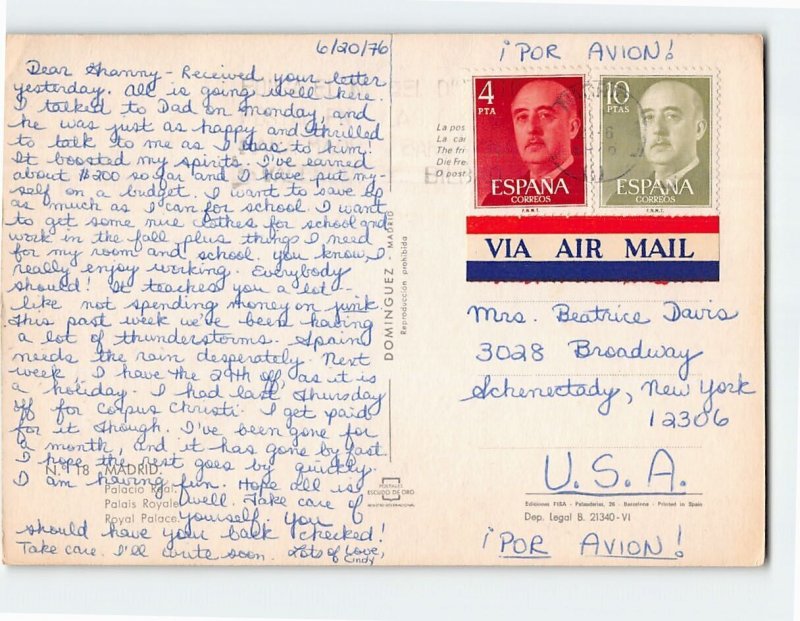 6/20/76
Dear Granny - Received your letter
yesterday. All is going well here.
I talked to Dad on Monday, and
he was just as happy and thrilled
to talk to me as I was to him!
It boosted my spirits. I've earned
about $200 so far and I have put my-
self on a budget. I want to save
as much as I can for school. I want
to get some nice clothes for school and
work in the fall, plus things I need
for my room and school. You know, I
really enjoy working. Everybody
should! It teaches you a lot -
like not spending money on junk.
This past week we've been having
a lot of thunderstorms. Spain
needs the rain desperately. Next
week, I have the 29th off, as it is
a holiday. I had last Thursday
off for Corpus Christi. I get paid
for it though. I've been gone for
a month, and it has gone by fast.
I hope the rest goes by quickly.
I am having fun. Hope all is
well. Take care of
yourself. You
should have you back checked!
Take care. I'll write soon. Lots of Love,
Cindy
N.º 118 MADRID.
Palacio Real.
Palais Royale
Royal Palace.
DOMINGUEZ - MADRID
Reproducción prohibida
POSTALES
ESCUDO DE ORO
REGISTRO INTERNACIONAL
¡POR AVION!
La pos
La ca
The fri
Die Fre
O post
4
PTA
ESPAÑA
CORREOS
F.N.M.T.
10
PTAS
ESPAÑA
CORREOS
F.N.M.T.
VIA AIR MAIL
Mrs. Beatrice Davis
3028 Broadway
Schenectady, New York
12306
U.S.A.
Ediciones FISA - Palaudarias, 26 - Barcelona - Printed in Spain
Dep. Legal B. 21340-VI
¡POR AVION!